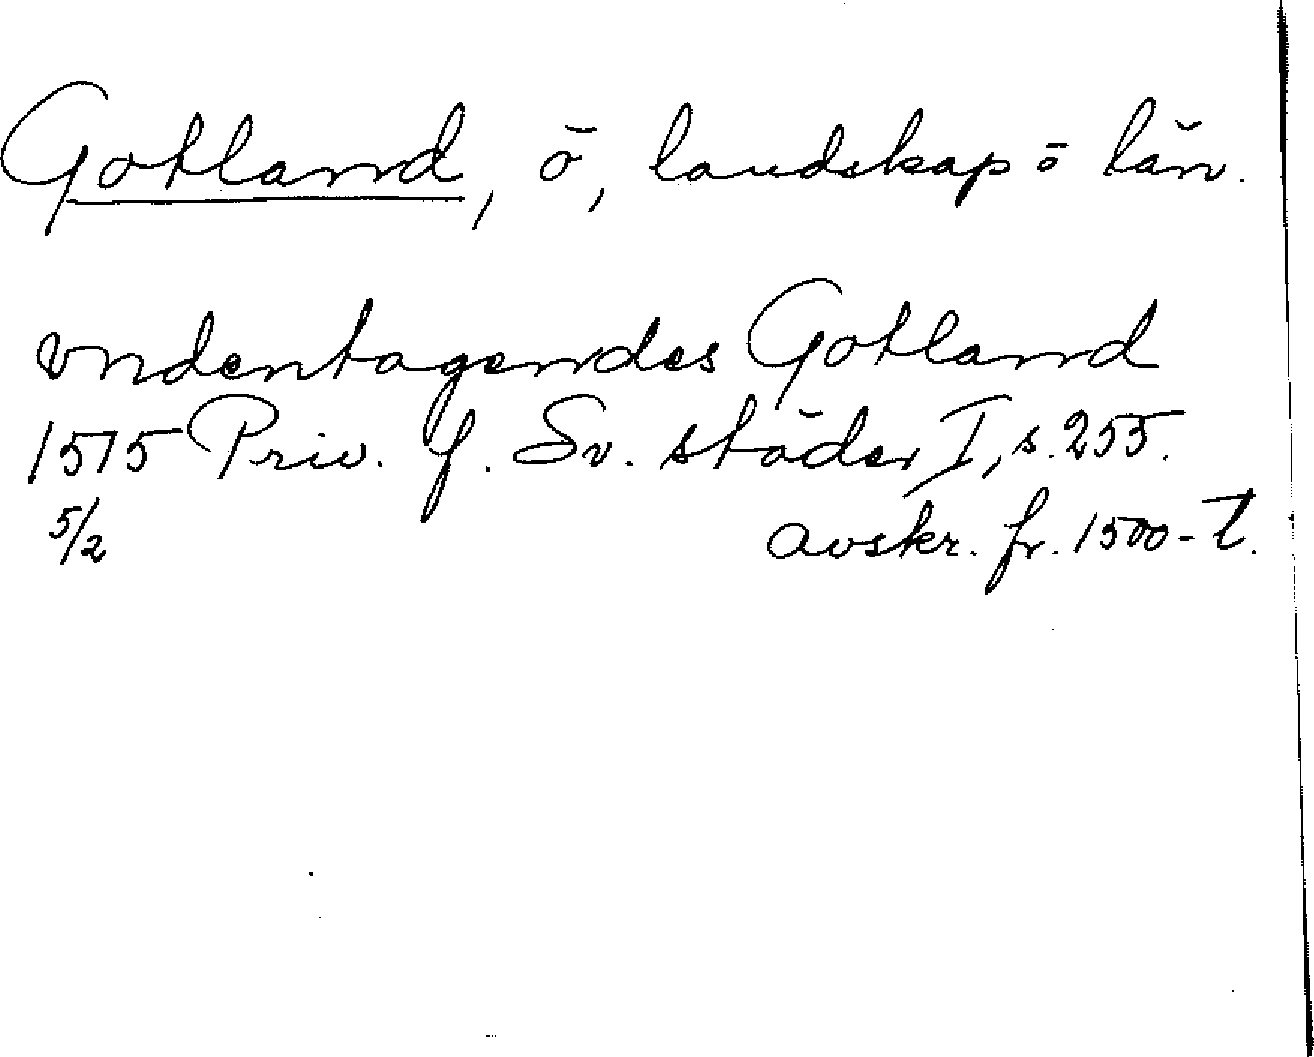 Gotland, ö, landskap o län.
vndentagendes Gotland
1575 Priv. f. Sv. städer I, s. 255.
5/2 avskr. fr. 1500-t.